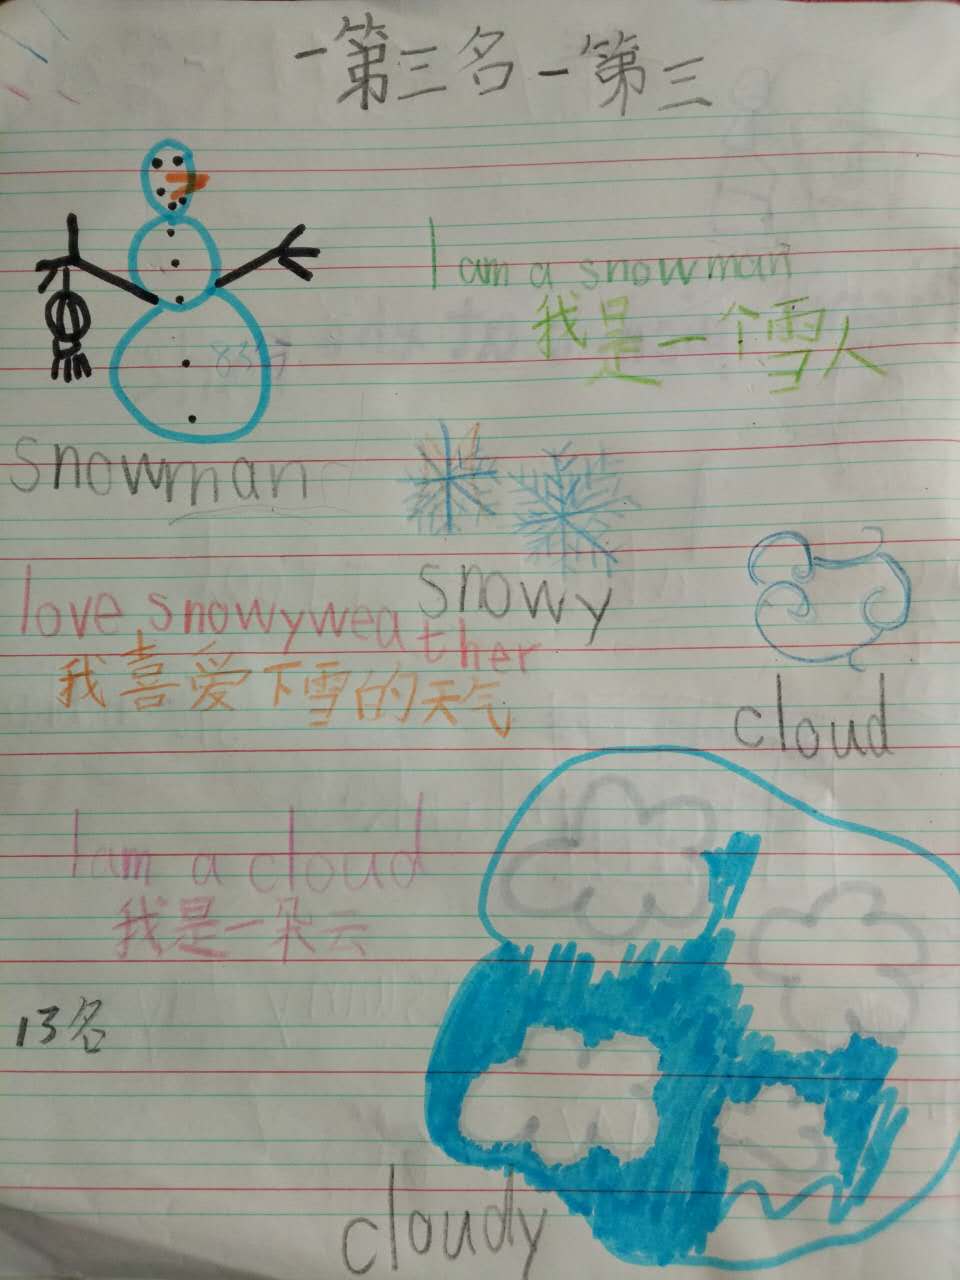 一第三名一第三
I am a snowman
我是一个雪人
snowman
snowy
love snowyweather
我喜爱下雪的天气
cloud
I am a cloud
我是一朵云
13名
cloudy